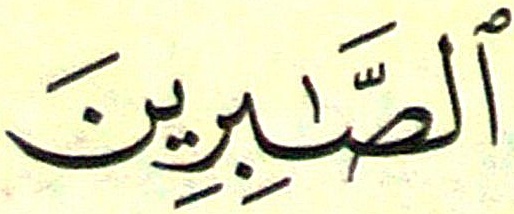 ٱلصَّٰبِرِينَ